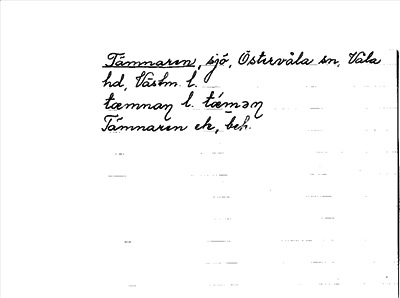 Tämnaren, sjö, Östervåla sn, Våla
hd, Västm. l.
tæmnaŋ l. tæ̀məŋ
Tämnaren ek, beh.